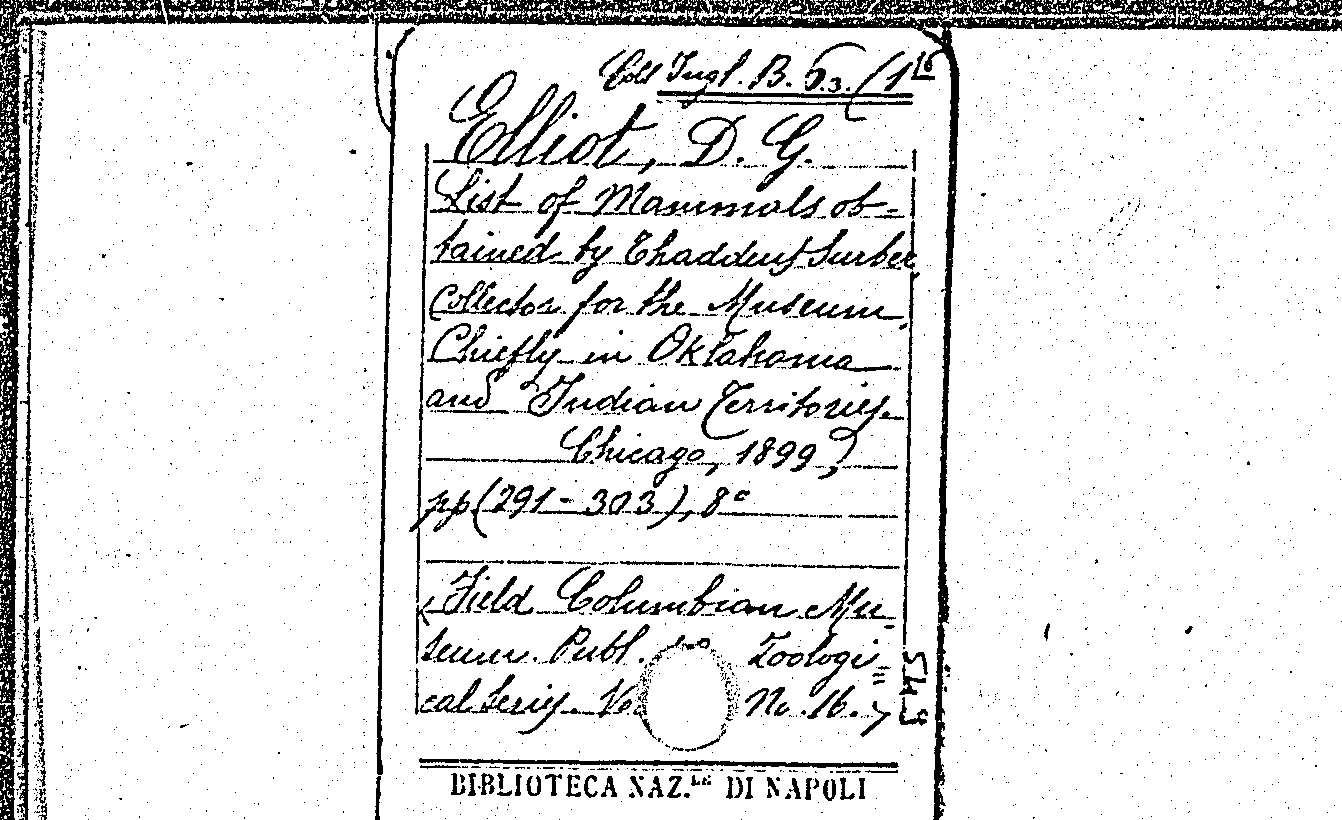 Coll Ingl. B. 53. (16
Elliot, D. G.
List of Mammals ob-
tained by Thaddeus Surber
Collector for the Museum,
Chiefly in Oklahoma
and Indian Territories.
Chicago, 1899,
pp (291-303), 8°
(Field Columbian Mu-
seum. Publ. Zoologi=
cal Series. No. 16.)
BIBLIOTECA NAZ.LE DI NAPOLI